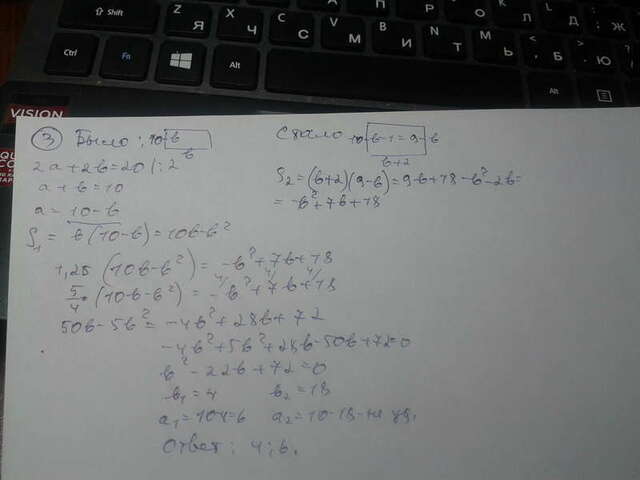 Shift
Z
Я
X
Ч
C
С
V
М
B
И
N
Т
M
Ь
Б
Ю
Л
Д
Ж
Ctrl
Fn
Alt
Alt
VISION
3 Было: 10-b
b
Стало 10-b-1=9-b
b+2
2a+2b=20 |:2
a+b=10
a=10-b
S₁= b(10-b)=10b-b²
S₂=(b+2)(9-b)=9b+18-b²-2b=
=-b²+7b+18
1,25(10b-b²)=-b²+7b+18
5/4·(10b-b²)=-b²+7b+18
50b-5b²=-4b²+28b+72
-4b²+5b²+28b-50b+72=0
b²-22b+72=0
b₁=4 b₂=18
a₂=10-18-не уд.
Ответ: 4;6.